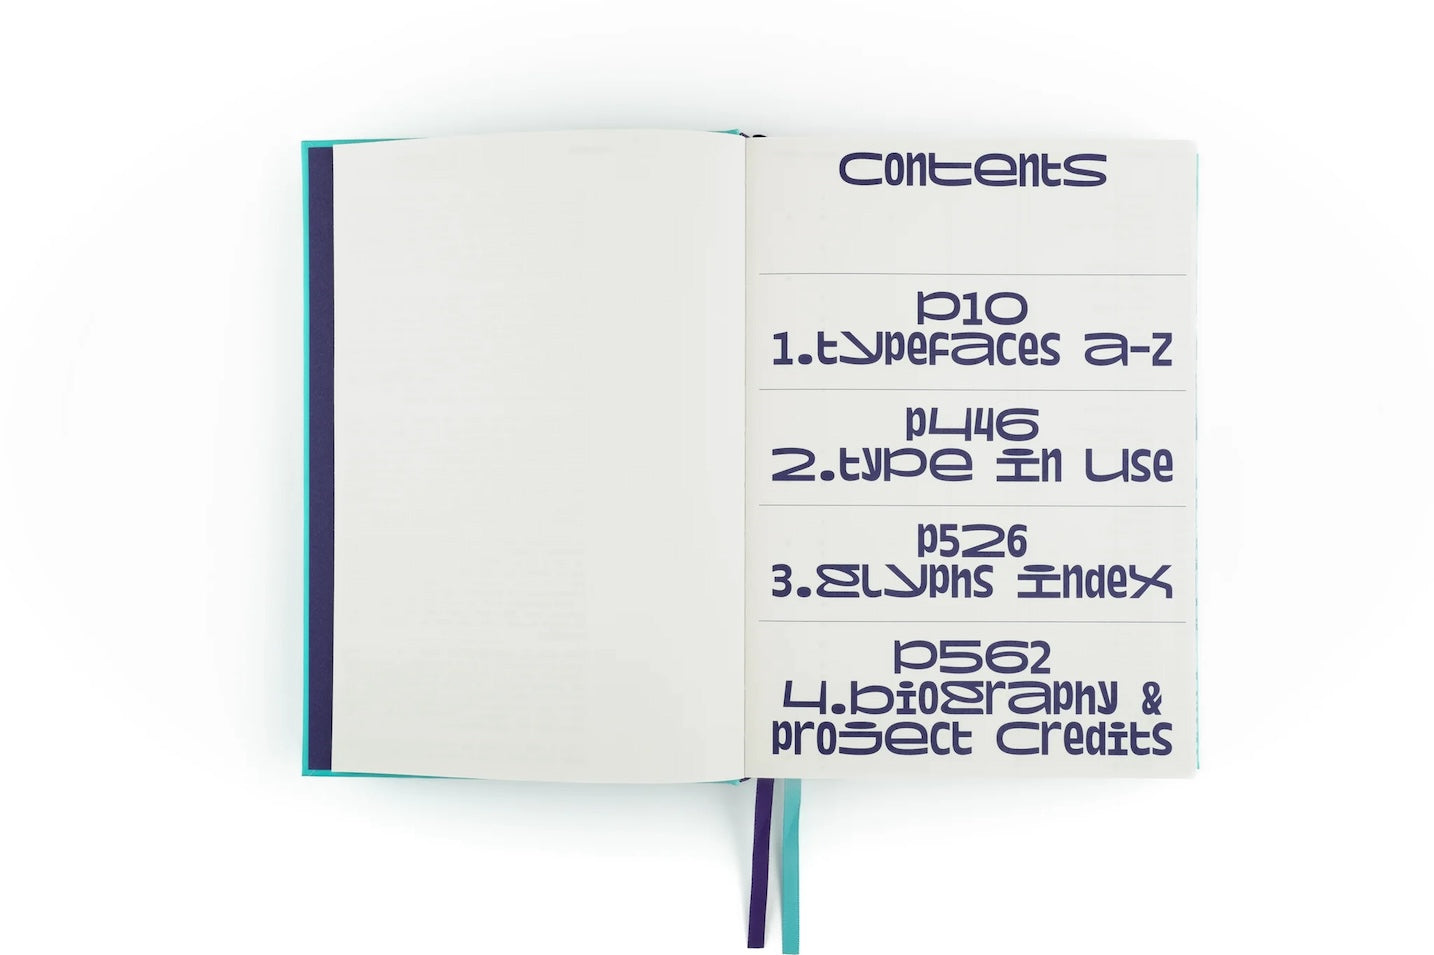 contents
p10
1.typefaces a-z
p446
2.type in use
p526
3.glyphs index
p562
4.biography &
project credits